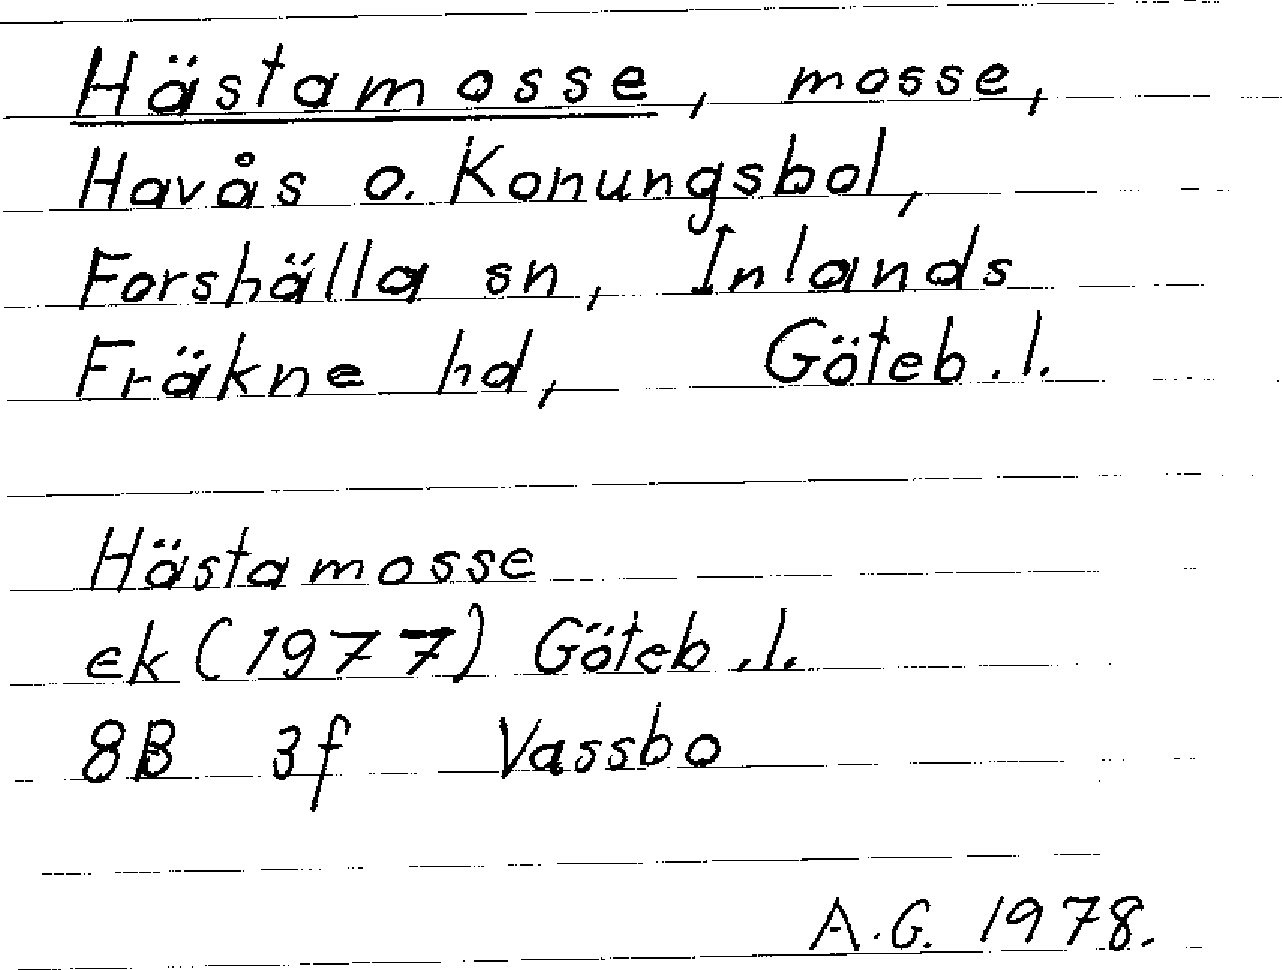 Hästamosse, mosse,
Havås o. Konungsbol,
Forshälla sn, Inlands
Fräkne hd, Göteb. l.
Hästamosse
ek (1977) Göteb. l.
8B 3f Vassbo
A.G. 1978.